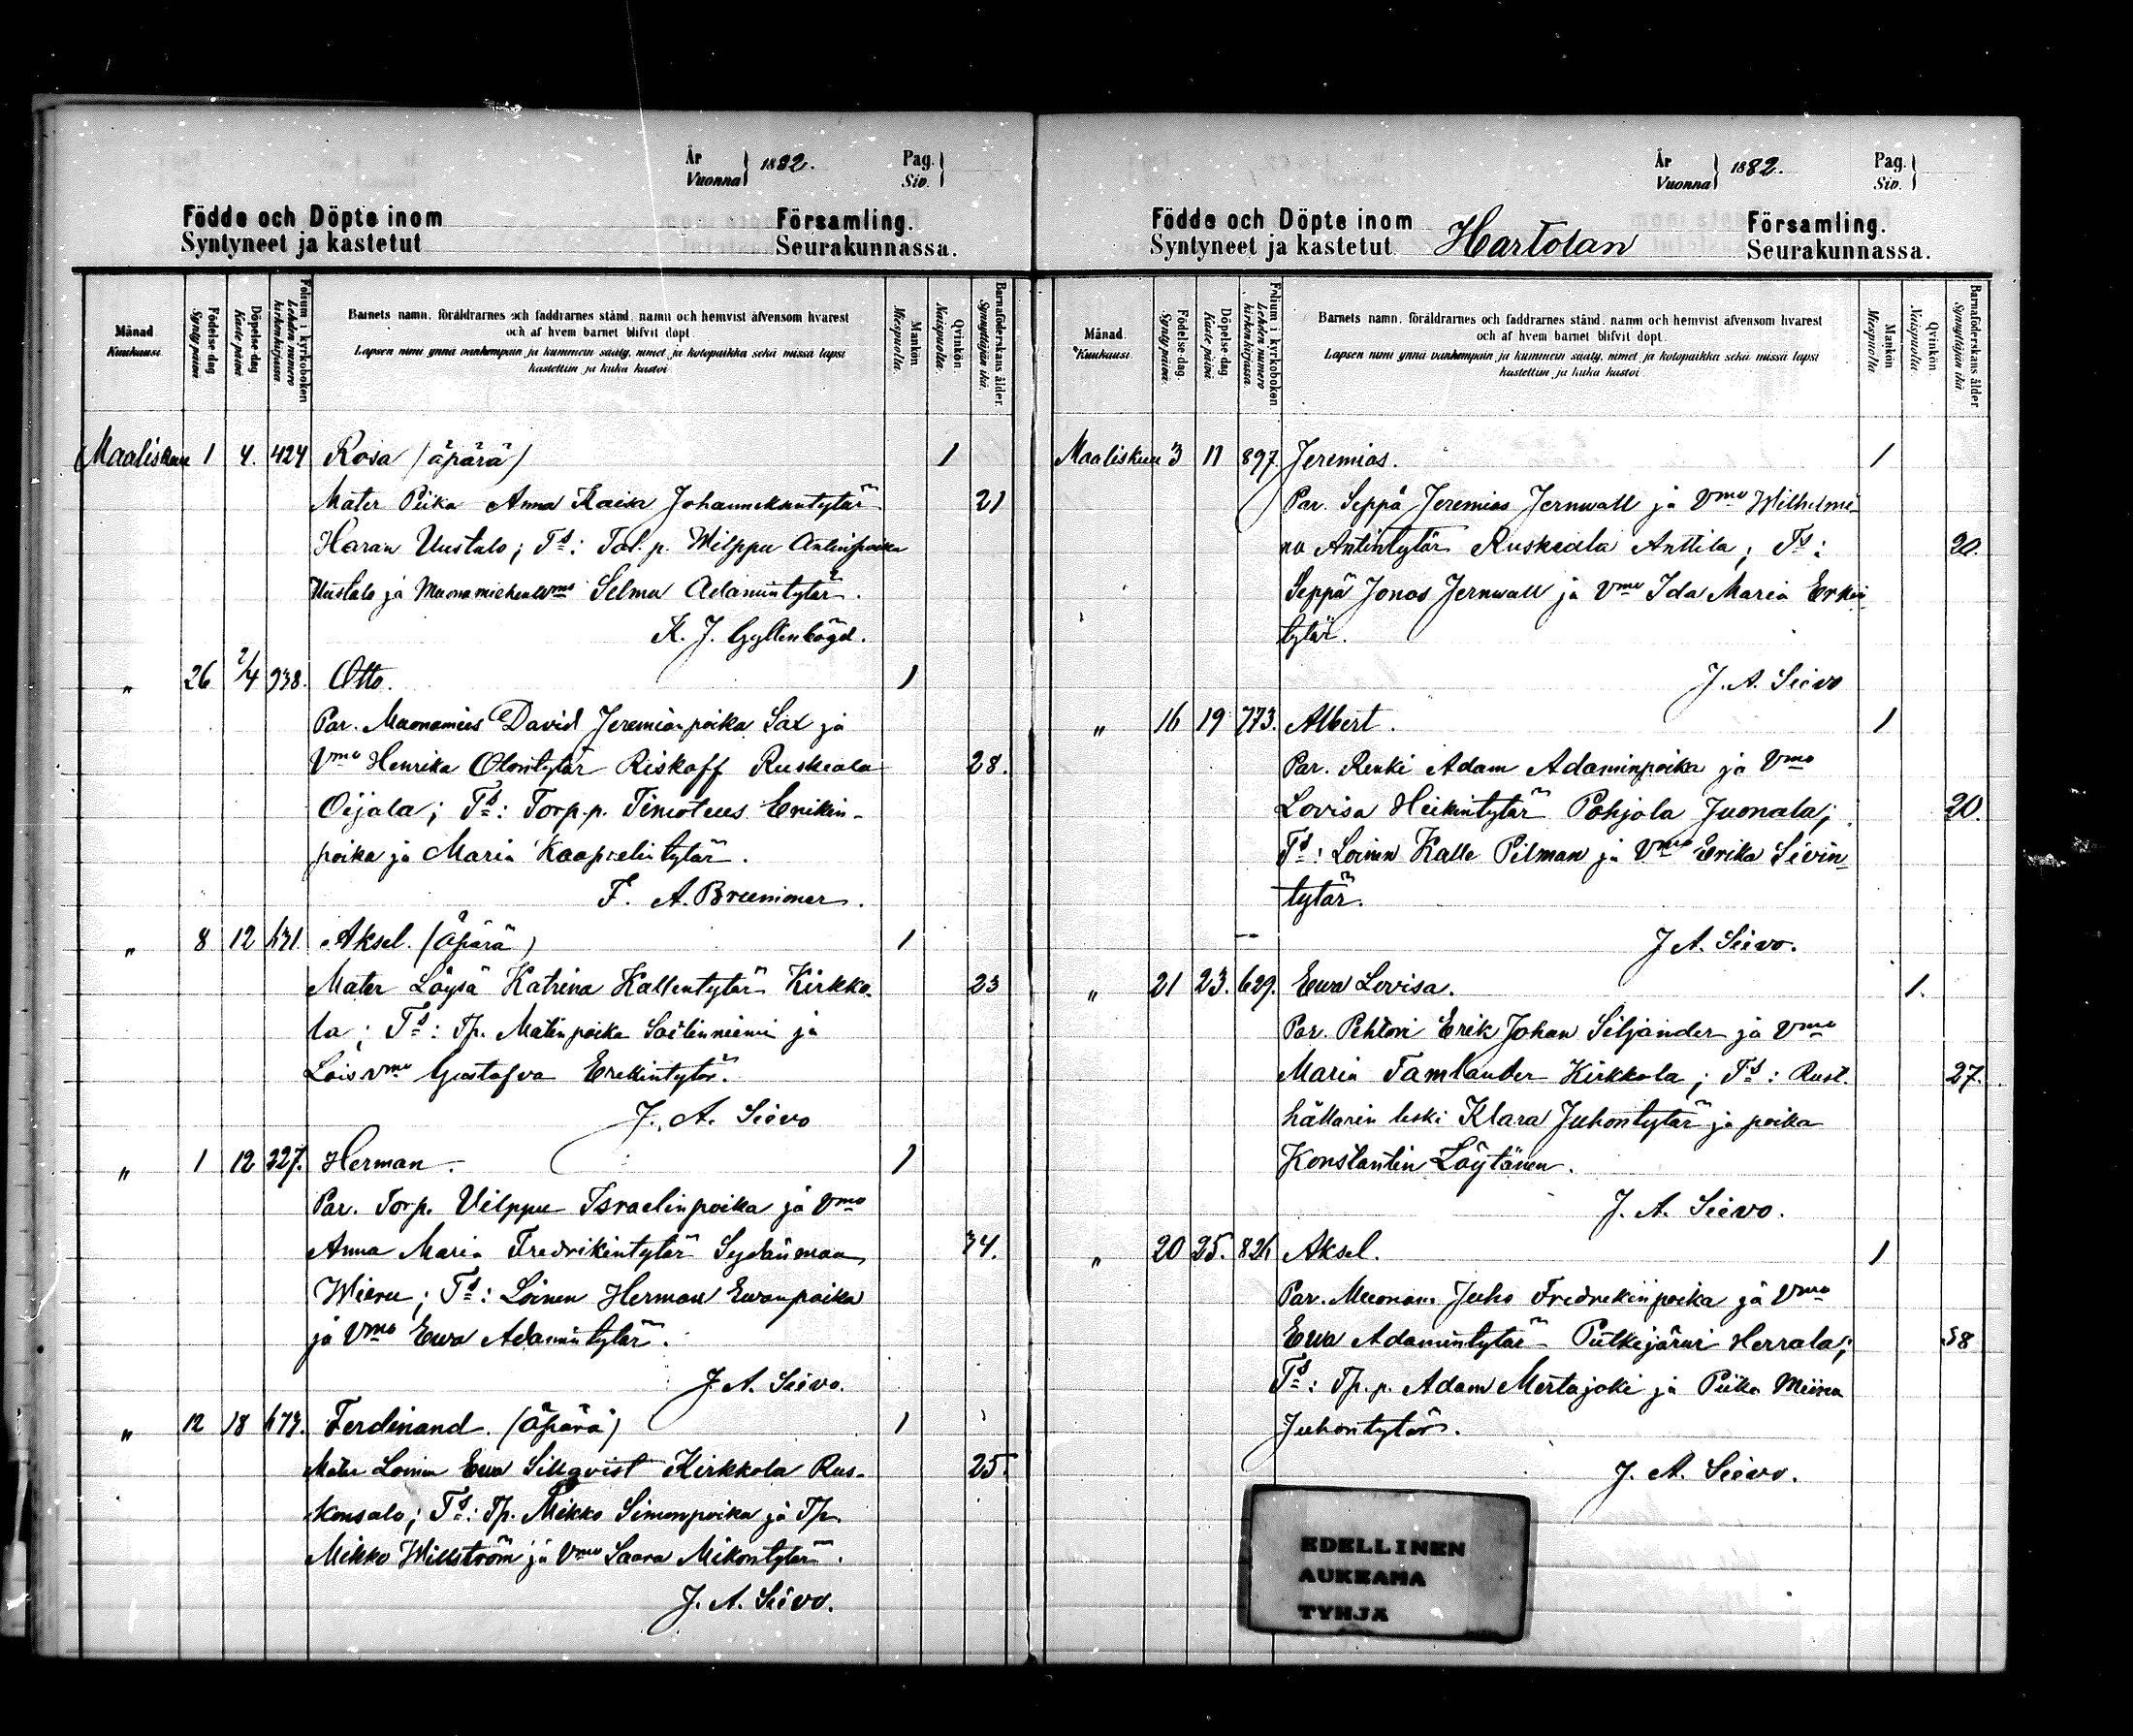 År
Vuonna } 1882.
Pag.
Siv. }
Födde och Döpte inom Församling.
Syntyneet ja kastetut Seurakunnassa.
Månad.
Kuukausi.
Födelse-dag.
Synty päivä
Döpelse-dag
Kaste päivä
Folium i kyrkoboken
Lehden numero kirkonkirjassa.
Barnets namn, föräldrarnes och faddrarnes stånd, namn och hemvist äfvensom hvarest
och af hvem barnet blifvit döpt.
Lapsen nimi ynnä vanhempain ja kummein sääty, nimet ja kotopaikka sekä missä lapsi
kastettiin ja kuka kastoi
Mankön
Miespuolia.
Qvinkön.
Naispuolia.
Barnaföderskans ålder.
Synnyttäjän ikä.
Maaliskuu 1 4. 424 Rosa (äpärä) 1
Mater Piika Anna Kaisa Johanneksentytär 21
Haran Uustalo; Ts: Tal. p. Wilppu Antinpoika
Uustalo ja Muonamiehen Vmo Selma Adamintytär.
K. J. Gyllenbögel.
" 26 2/4 938. Otto. 1
Par. Muonamies David Jeremianpoika Sax ja
Vmo Henrika Olontytär Riskoff Ruskeala 28.
Oijala; Ts: Torp.p. Timoteus Erikin-
poika ja Maria Kaaprielintytär.
F. A. Brummer.
" 8 12 631 Aksel. (Äpärä) 1
Mater Löysä Katrina Kallentytär Kirkko- 23
la; Ts: Tp. Matinpoika Saitinniemi ja
Lois vmo Gustafva Erekintytär.
J. A. Siévo
" 1 12 227. Herman. 1
Par. Torp. Vilppu Israelinpoika ja Vmo
Anna Maria Fredrikintytär Sydänmaa 34.
Wieru; Ts: Loinen Herman Ewanpoika
ja Vmo Ewa Adamintytär.
J. A. Siévo.
" 12 18 673. Ferdinand. (Äpärä) 1
Mater Loinen Ewa Sillqvist Kirkkola Rus- 25.
konsalo; Ts: Tp. Mikko Simonpoika ja Tp.
Mikko Willström ja Vmo Saara Mikontytär.
J. A. Siévo.
År
Vuonna } 1882.
Pag.
Siv. }
Födde och Döpte inom Hartolan Församling.
Syntyneet ja kastetut Seurakunnassa.
Månad.
Kuukausi.
Födelse-dag.
Synty päivä.
Döpelse-dag.
Kaste päivä
Folium i kyrkoboken
Lehden numero kirkonkirjassa.
Barnets namn, föräldrarnes och faddrarnes stånd, namn och hemvist äfvensom hvarest
och af hvem barnet blifvit döpt.
Lapsen nimi ynnä vanhempain ja kummein sääty, nimet ja kotopaikka sekä missä lapsi
kastettiin ja kuka kastoi
Mankön
Miespuolia
Qvinkön
Naispuolia.
Barnaföderskans ålder
Synnyttäjän ikä.
Maaliskuu 3 11 897. Jeremias. 1
Par. Seppä Jeremias Jernwall ja Vmo Wilhelmi
na Antintytär Ruskeala Anttila; Ts: 20.
Seppä Jonas Jernwall ja Vmo Ida Maria Erkin
tytär.
J. A. Siévo
" 16 19 773. Albert. 1
Par. Renki Adam Adaminpoika ja Vmo
Lovisa Heikintytär Pohjola Juonala; 20.
Ts: Loinen Kalle Pilman ja Vmo Erika Sivin
tytär.
J. A. Siévo.
" 21 23. 629. Ewa Lovisa. 1.
Par. Pehtori Erik Johan Siljander ja Vmo
Maria Tamlander Kirkkola; Ts: Rust. 27.
hållarin leski Klara Juhontytär ja poika
Konstantin Löytänen.
J. A. Siévo.
" 20 25. 826 Aksel. 1
Par. Muonam. Juho Fredrekinpoika ja Vmo
Ewa Adamintytär Putkijärvi Herrala; 38
Ts: Tp.p. Adam Mertajoki ja Piika Miina
Juhontytär.
J. A. Siévo.
EDELLINEN
AUKEAMA
TYHJÄ